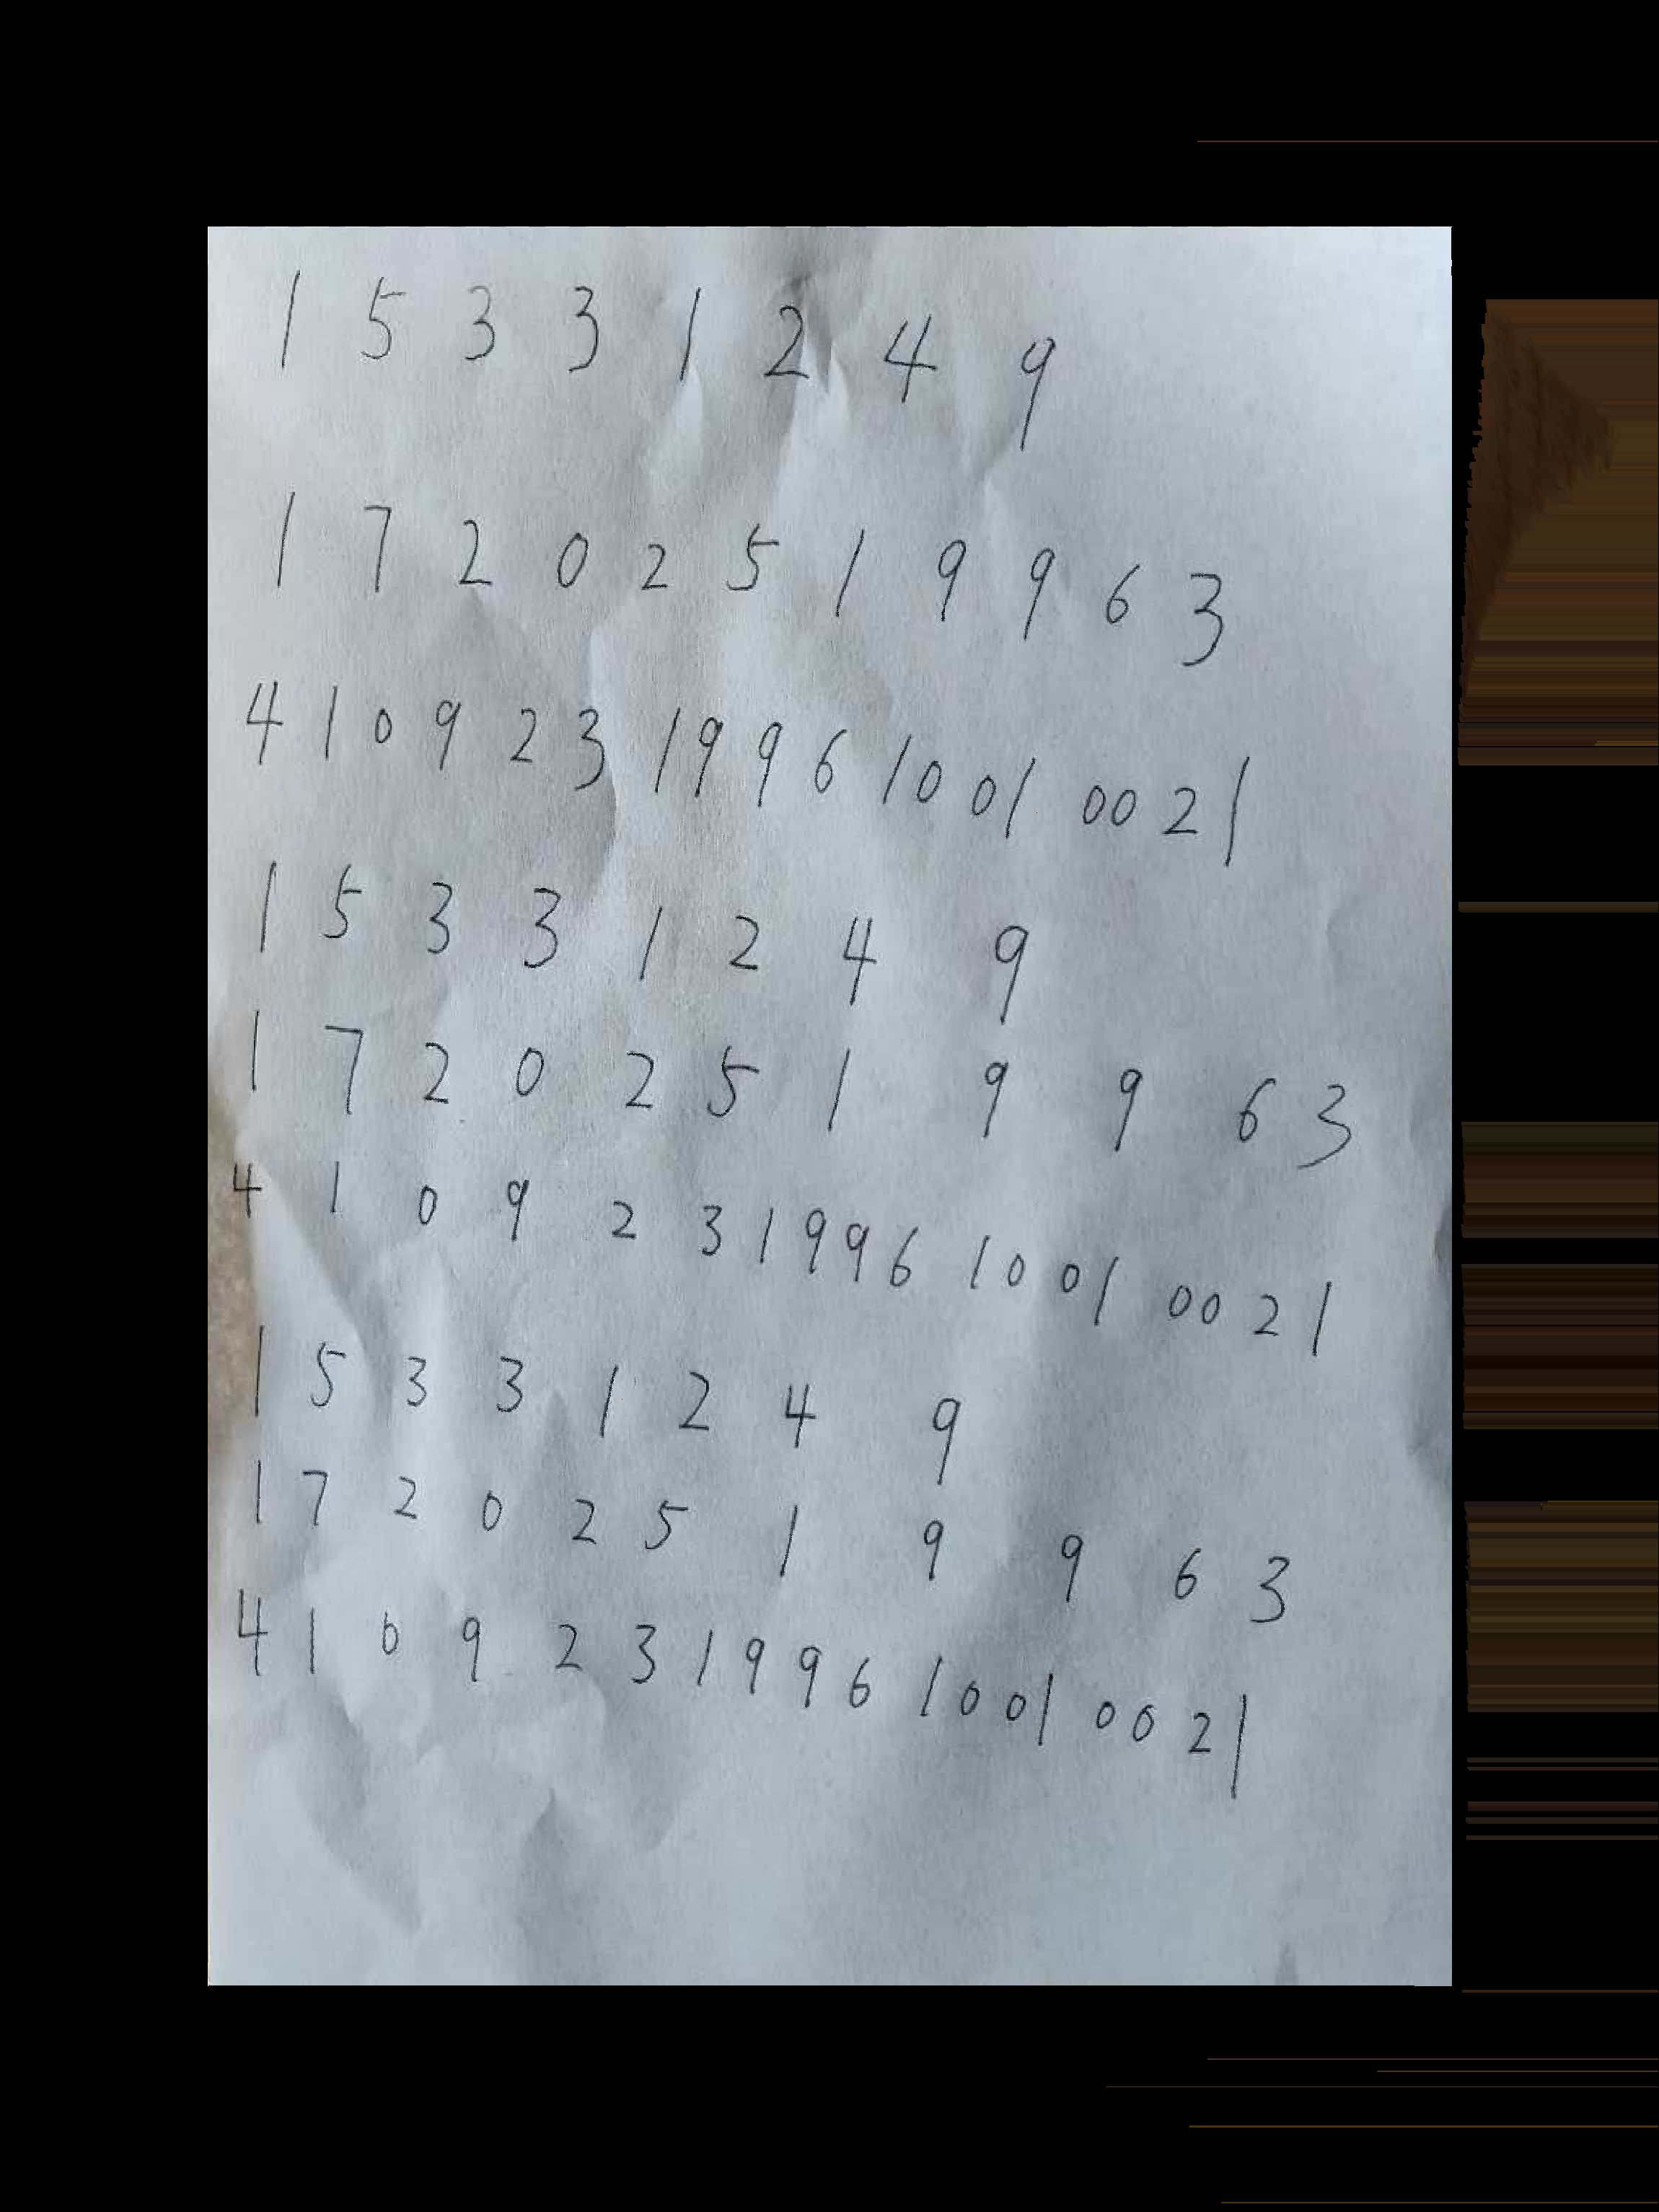 1 5 3 3 1 2 4 9
1 7 2 0 2 5 1 9 9 6 3
4 1 0 9 2 3 1 9 9 6 1 0 0 1 0 0 2 1
1 5 3 3 1 2 4 9
1 7 2 0 2 5 1 9 9 6 3
4 1 0 9 2 3 1 9 9 6 1 0 0 1 0 0 2 1
1 5 3 3 1 2 4 9
1 7 2 0 2 5 1 9 9 6 3
4 1 0 9 2 3 1 9 9 6 1 0 0 1 0 0 2 1